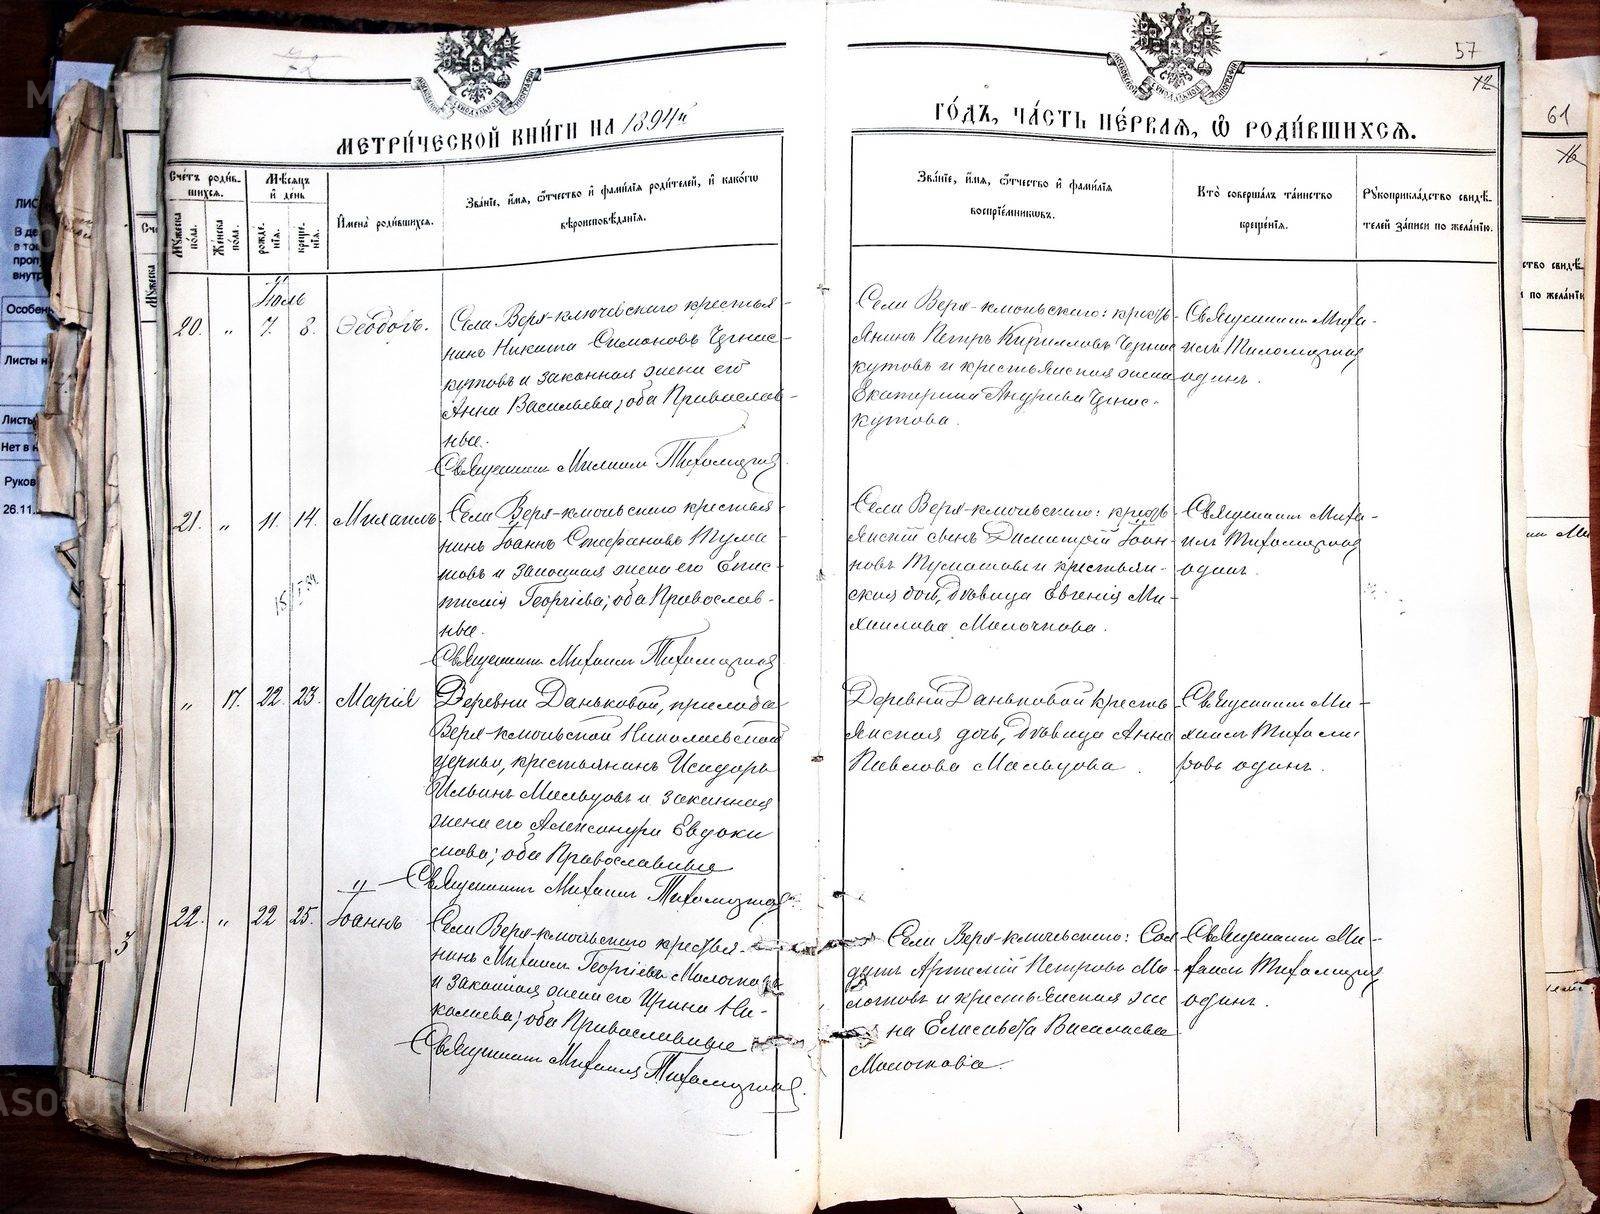 57
72
МЕТРИ́ЧЕСКОЙ КНИ́ГИ НА 1894й
ГО́ДЪ, ЧА́СТЬ ПЕ́РВАЯ, Ѡ҆ РОДИ́ВШИХСЯ.
Сче́тъ роди́в-
шихся.
Мꙋ́жеска пола.
Же́нска пола.
Мѣ́сяцъ
и҆ де́нь
рожде́-
нїя.
креще́-
нїя.
И҆мена̀ роди́вшихся.
Зва́нїе, и҆́мя, ѻ҆́тчество и҆ фами́лїя роди́телей, и҆ како́гѡ
вѣроисповѣ́данїя.
Зва́нїе, и҆́мя, ѻ҆́тчество и҆ фами́лїя
воспрїе́мникѡвъ.
Кто̀ соверша́лъ та́инство
креще́нїя.
Рꙋкоприкла́дство свидѣ́-
телей за́писи по жела́нїю.
Іюль
20. „ 7. 8. Ѳеодоръ.
Села Верх-ключевскаго крестья-
нинъ Никита Симоновъ Черно-
кутовъ и законная жена его
Анна Васильева; оба Православ-
ные.
Священникъ Михаилъ Тихомировъ
Села Верх-ключевскаго: кресть-
янинъ Петръ Кирилловъ Черно
кутовъ и крестьянская жена
Екатерина Андреева Черно-
кутова.
Священникъ Миха-
илъ Тихомировъ
одинъ.
21. „ 11. 14. Михаилъ.
Села Верх-ключевскаго крестья-
нинъ Іоаннъ Стефановъ Тума-
товъ и законная жена его Епис-
тимія Георгіева; оба Православ-
ные.
Священникъ Михаилъ Тихомировъ
Села Верх-ключевскаго: кресть-
янскій сынъ Димитрій Іоан-
новъ Туматовъ и крестьян-
ская дочь, дѣвица Евгенія Ми-
хаилова Молочкова.
Священникъ Миха-
илъ Тихомировъ
одинъ.
„ 17. 22. 23. Марія
Деревни Даньковой, прихода
Верх-ключевской Николаевской
церкви, крестьянинъ Исидоръ
Ильинъ Мальцовъ и законная
жена его Александра Евдоки
мова; оба Православные
Священникъ Михаилъ Тихомировъ
Деревни Даньковой кресть-
янская дочь, дѣвица Анна
Павлова Мальцова.
Священникъ Ми-
хаилъ Тихоми
ровъ одинъ.
22. „ 22 25. Іоаннъ
Села Верх-ключевскаго крестья-
нинъ Михаилъ Георгіевъ Молочковъ
и законная жена его Ирина Ни-
колаева; оба Православные
Священникъ Михаилъ Тихомировъ.
Села Верх-ключевскаго: Сол
датъ Артемій Петровъ Мо-
лочковъ и крестьянская же
на Елисавета Васильева
Молочкова.
Священникъ Ми-
хаилъ Тихомировъ
одинъ.
61
76
3